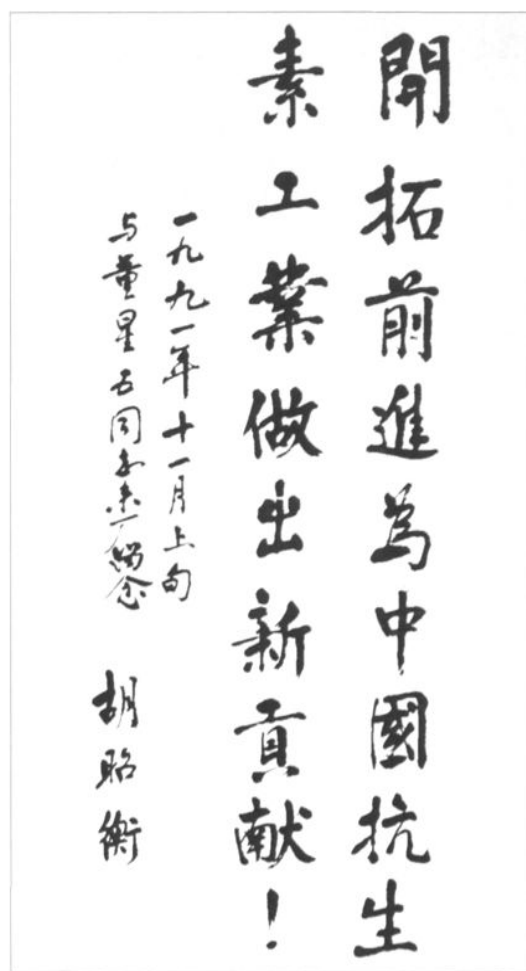 開拓前進為中國抗生
素工業做出新貢献！
一九九一年十一月上旬
与董星五同志来厂留念
胡昭衡